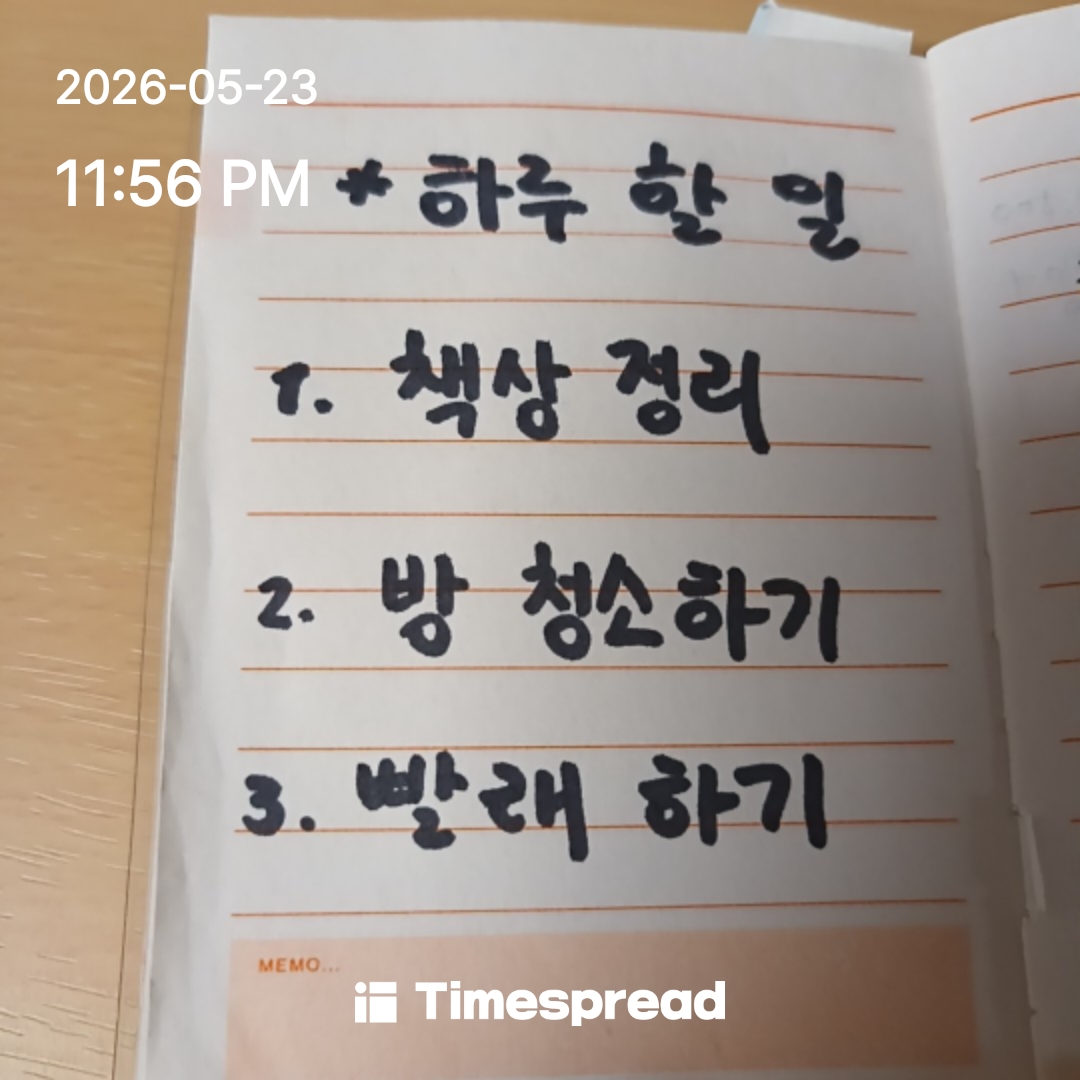 2026-05-23
11:56 PM
* 하루 할 일
1. 책상 정리
2. 방 청소하기
3. 빨래 하기
MEMO...
Timespread